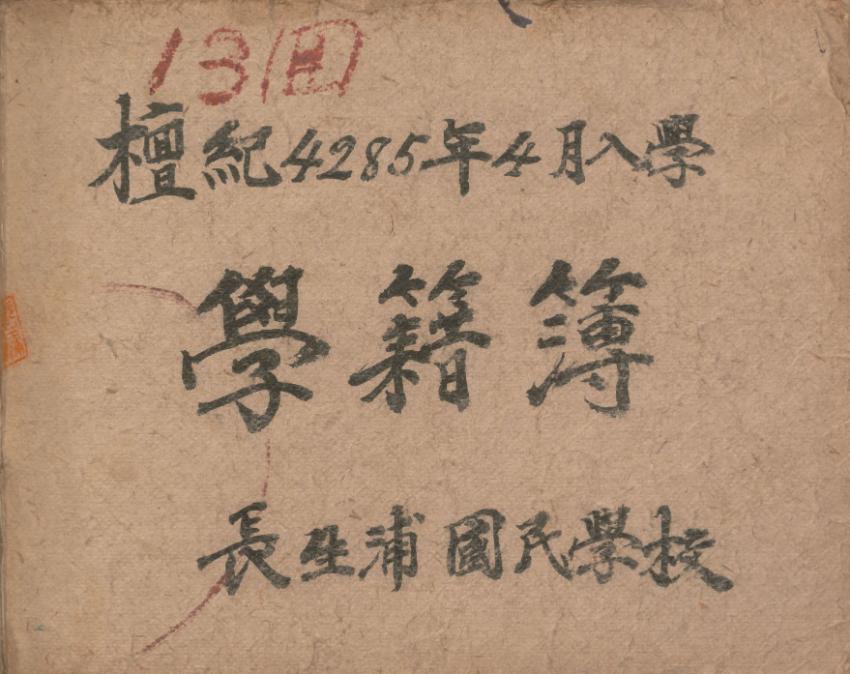 13回
檀紀4285年4月入學
學籍簿
長生浦國民學校